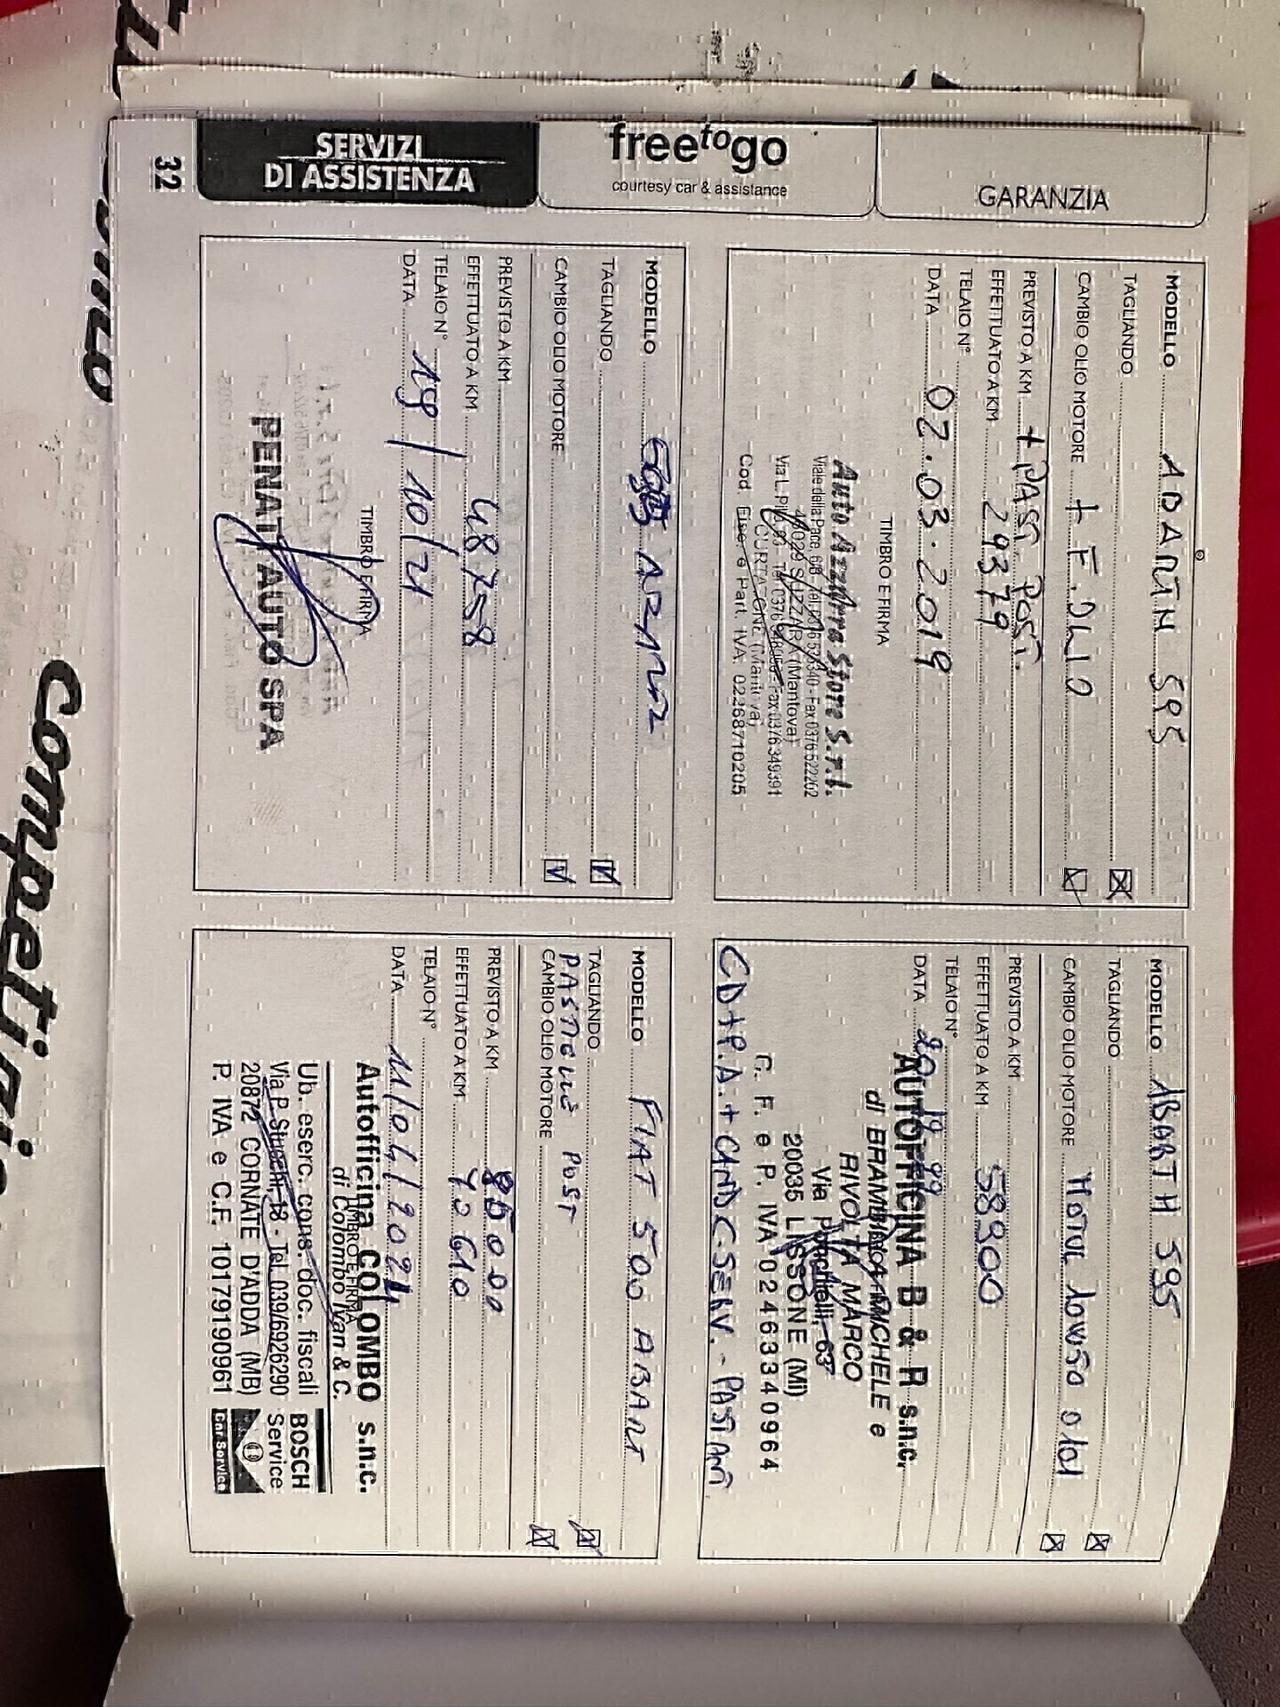 SERVIZI
DI ASSISTENZA
freetogo
courtesy car & assistance
GARANZIA
32
MODELLO ABARTH 595
TAGLIANDO
CAMBIO OLIO MOTORE + F. OLIO
PREVISTO A KM + PAST. POST.
EFFETTUATO A KM 29379
TELAIO N°
DATA 02.03.2019
TIMBRO E FIRMA
Auto Azzurra Store S.r.l.
Viale della Pace, Fax 0376 522262
46029 SUZZARA (Mantova)
Via L. Fax 0376 349391
CURTATONE (Mantova)
Cod. Fisc. e Part. IVA 02268710205
MODELLO ABARTH 595
TAGLIANDO
CAMBIO OLIO MOTORE MOTUL 10W50
PREVISTO A KM
EFFETTUATO A KM 58900
TELAIO N°
DATA
AUTOFFICINA B & R s.n.c.
di BRAMBILLA MICHELE e
RIVOLTA MARCO
Via Ponchielli, 63
20035 LISSONE (MI)
C. F. e P. IVA 02463340964
MODELLO 595 ABARTH
TAGLIANDO
CAMBIO OLIO MOTORE
PREVISTO A KM
EFFETTUATO A KM 48758
TELAIO N°
DATA 19/10/21
TIMBRO E FIRMA
PENATI AUTO SPA
MODELLO FIAT 500 ABART
TAGLIANDO
PASTICLIE POST
CAMBIO OLIO MOTORE
PREVISTO A KM 85000
EFFETTUATO A KM 70610
TELAIO N°
DATA 11/04/2024
TIMBRO E FIRMA
Autofficina COLOMBO s.n.c.
di Colombo Ivan & C.
Ub. eserc. cons. doc. fiscali
Via P. 18 - Tel. 039/6926290
20872 CORNATE D'ADDA (MB)
P. IVA e C.F. 10179190961
BOSCH
Service
Car Service
Competizio